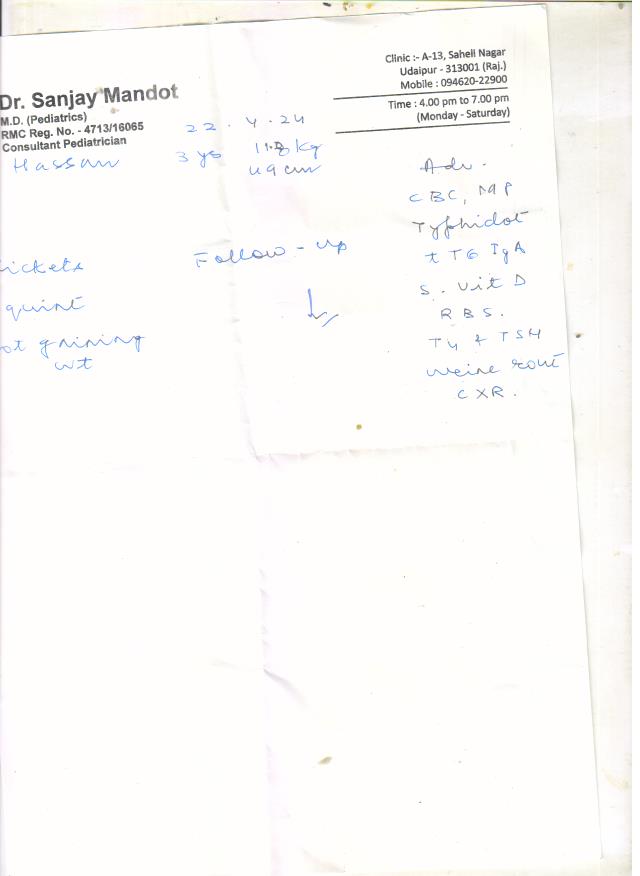 Dr. Sanjay Mandot
M.D. (Pediatrics)
RMC Reg. No. - 4713/16065
Consultant Pediatrician
Clinic :- A-13, Saheli Nagar
Udaipur - 313001 (Raj.)
Mobile : 094620-22900
Time : 4.00 pm to 7.00 pm
(Monday - Saturday)
22.4.24
Hassan 3 ys 11.8 kg
49 cm
ickets
quint
ot gaining
wt
Follow-up
Adv.
CBC, MP
Typhidot
tTG IgA
S. Vit D
RBS.
T4 & TSH
CXR.